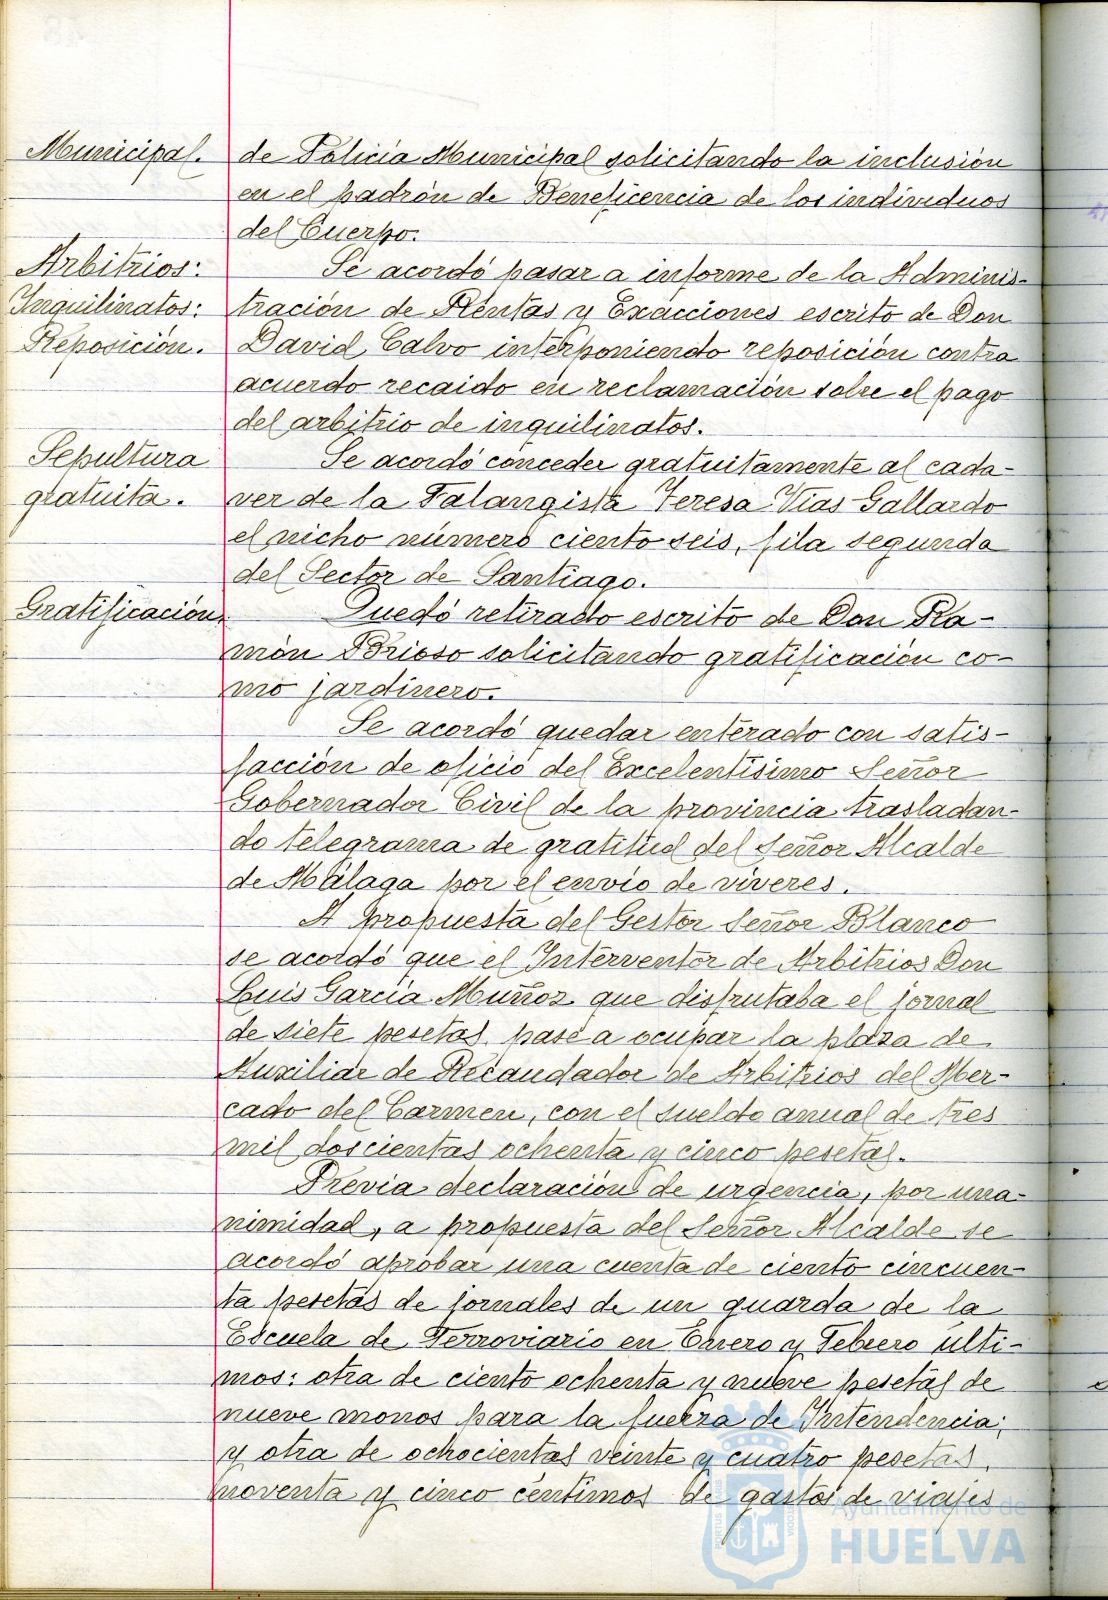 Municipal.
de Policía Municipal solicitando la inclusión
en el padrón de Beneficencia de los individuos
del Cuerpo.
Arbitrios:
Inquilinatos:
Reposición.
Se acordó pasar a informe de la Adminis-
tración de Rentas y Exacciones escrito de Don
David Calvo interponiendo reposición contra
acuerdo recaido en reclamación sobre el pago
del arbitrio de inquilinatos.
Sepultura
gratuita.
Se acordó conceder gratuitamente al cada-
ver de la Falangista Teresa Vías Gallardo
el nicho número ciento seis, fila segunda
del Sector de Santiago.
Gratificación.
Quedó retirado escrito de Don Ra-
món Brioso solicitando gratificación co-
mo jardinero.
Se acordó quedar enterado con satis-
facción de oficio del Excelentísimo Señor
Gobernador Civil de la provincia trasladan-
do telegrama de gratitud del Señor Alcalde
de Málaga por el envío de víveres.
A propuesta del Gestor Señor Blanco
se acordó que el Interventor de Arbitrios Don
Luis García Muñoz que disfrutaba el jornal
de siete pesetas, pase a ocupar la plaza de
Auxiliar de Recaudador de Arbitrios del Mer-
cado del Carmen, con el sueldo anual de tres
mil doscientas ochenta y cinco pesetas.
Previa declaración de urgencia, por una-
nimidad, a propuesta del Señor Alcalde se
acordó aprobar una cuenta de ciento cincuen-
ta pesetas de jornales de un guarda de la
Escuela de Ferroviario en Enero y Febrero últi-
mos: otra de ciento ochenta y nueve pesetas de
nueve monos para la fuerza de Intendencia;
y otra de ochocientas veinte y cuatro pesetas,
noventa y cinco céntimos de gastos de viajes
Ayuntamiento de
HUELVA